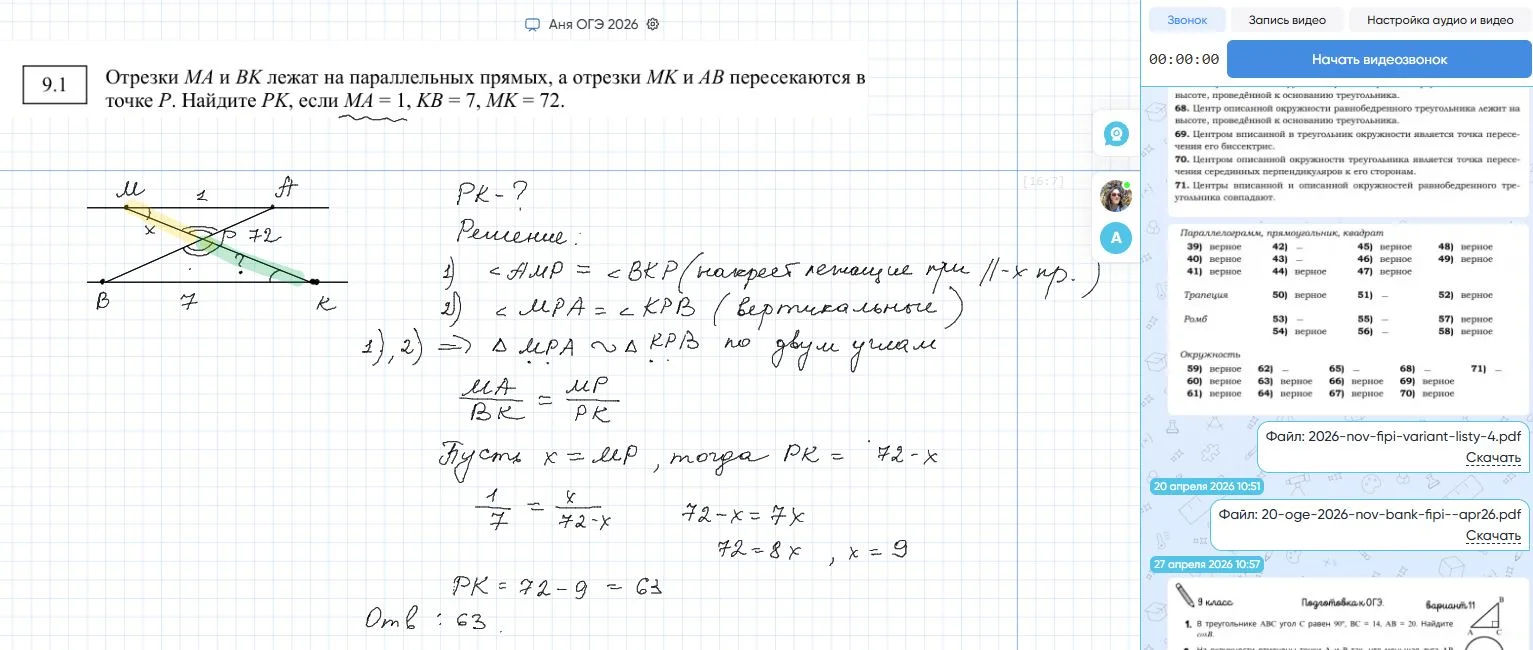 Аня ОГЭ 2026
9.1
Отрезки MA и BK лежат на параллельных прямых, а отрезки MK и AB пересекаются в
точке P. Найдите PK, если MA = 1, KB = 7, MK = 72.
M 1 A
x P 72
?
B 7 K
PK - ?
Решение:
1) <AMP = <BKP (накрест лежащие при //-х пр.)
2) <MPA = <KPB (вертикальные)
1), 2) => Δ MPA ~ Δ KPB по двум углам
MA/BK = MP/PK
Пусть x = MP, тогда PK = 72-x
1/7 = x/72-x 72-x = 7x
72 = 8x, x = 9
PK = 72-9 = 63
Отв: 63.
[16:7]
А
Звонок Запись видео Настройка аудио и видео
00:00:00 Начать видеозвонок
высоте, проведённой к основанию треугольника.
68. Центр описанной окружности равнобедренного треугольника лежит на
высоте, проведённой к основанию треугольника.
69. Центром вписанной в треугольник окружности является точка пересе-
чения его биссектрис.
70. Центром описанной окружности треугольника является точка пересе-
чения серединных перпендикуляров к его сторонам.
71. Центры вписанной и описанной окружностей равнобедренного тре-
угольника совпадают.
Параллелограмм, прямоугольник, квадрат
39) верное 42) – 45) верное 48) верное
40) верное 43) – 46) верное 49) верное
41) верное 44) верное 47) верное
Трапеция 50) верное 51) – 52) верное
Ромб 53) – 55) – 57) верное
54) верное 56) – 58) верное
Окружность
59) верное 62) – 65) – 68) – 71) –
60) верное 63) верное 66) верное 69) верное
61) верное 64) верное 67) верное 70) верное
Файл: 2026-nov-fipi-variant-listy-4.pdf
Скачать
20 апреля 2026 10:51
Файл: 20-oge-2026-nov-bank-fipi--apr26.pdf
Скачать
27 апреля 2026 10:57
9 класс Подготовка к ОГЭ. вариант 11
1. В треугольнике ABC угол C равен 90°, BC = 14, AB = 20. Найдите
cosB.
B
A C